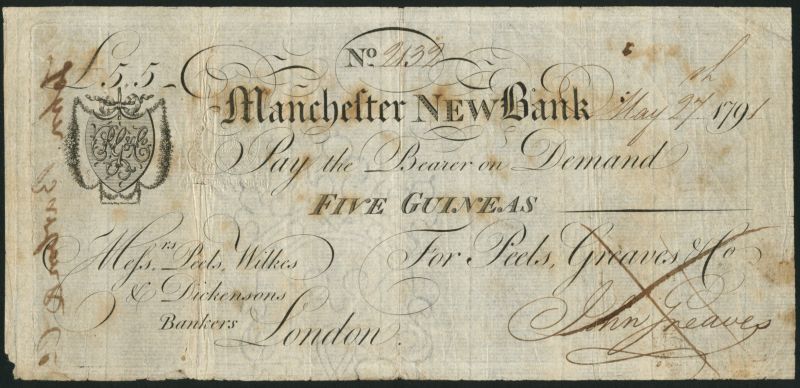 No. 2132
£5,5-
Manchefter NEW Bank May 27th 1791
Pay the Bearer on Demand
FIVE GUINEAS
Mefs.rs Peels, Wilkes
& Dickensons
Bankers London.
For Peels, Greaves & Co
John Greaves